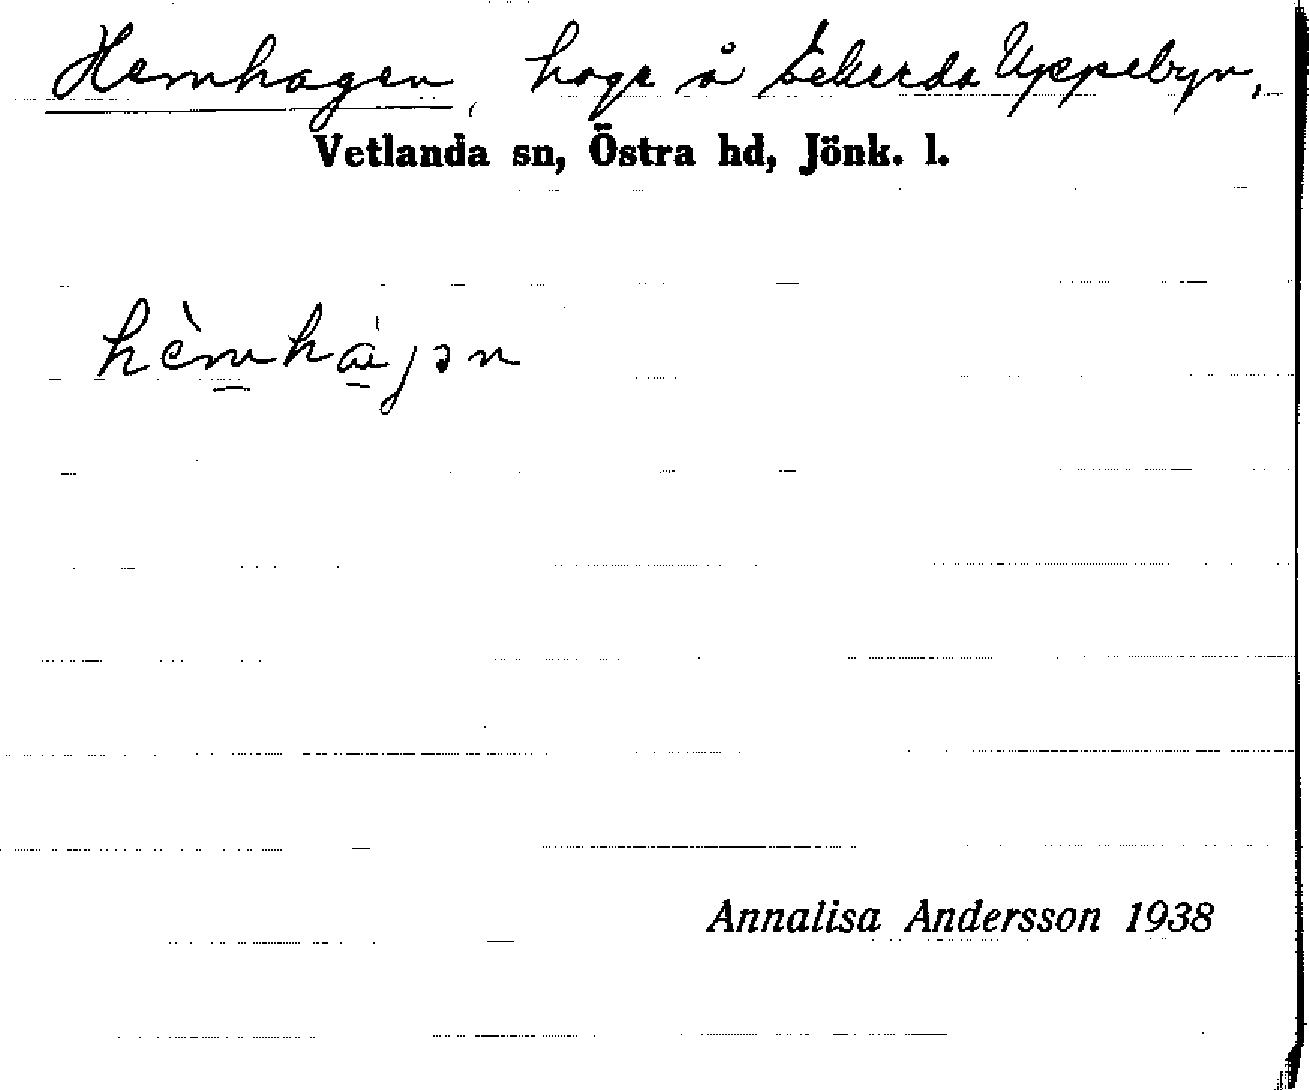 Hemhagen, hage å Ekerda Uppebyn,
Vetlanda sn, Östra hd, Jönk. l.
hèmhájən
Annalisa Andersson 1938